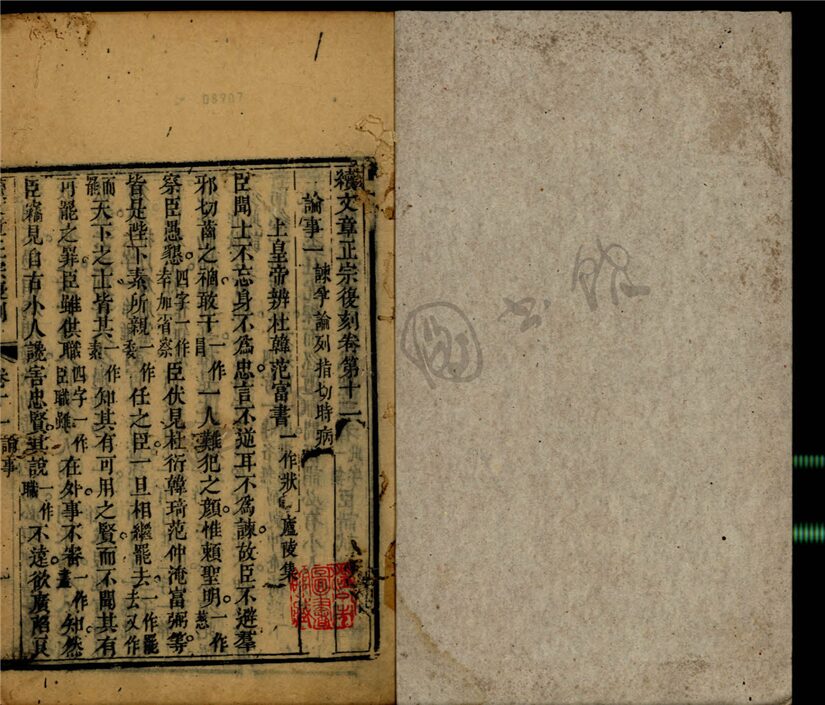 08907
續文章正宗復刻卷第十二
論事一 諫爭論列指切時病
上皇帝辨杜韓范富書 一作狀 廬陵集
臣聞士不忘身不爲忠言不逆耳不爲諫故臣不避羣
邪切齒之禍敢干一作冒一人難犯之顏惟賴聖明一作慈
察臣愚懇四字一作幸加省察臣伏見杜衍韓琦范仲淹富弼等
皆是陛下素所親一作委任之臣一旦相繼罷去一作罷去又作
而罷天下之士皆其一作素知其有可用之賢而不聞其有
可罷之罪臣雖供職四字一作臣職雖在外事不審一作盡知然
臣竊見自古小人讒害忠賢其說一作職不遠欲廣陷良
卷十二 論事